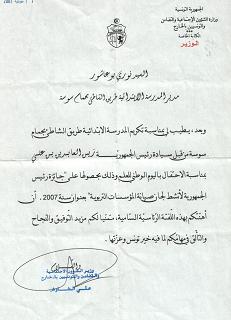 الجمهورية التونسية
وزارة الشؤون الإجتماعية والتضامن
والتونسيين بالخارج
الوزير
السيد نوري بوعاشور
مدير المدرسة الابتدائية طريق الشاطئ بحمام سوسة
وبعد، يطيب لي بمناسبة تكريم المدرسة الابتدائية طريق الشاطئ بحمام
سوسة من قبل سيادة رئيس الجمهورية زين العابدين بن علي
بمناسبة الاحتفال باليوم الوطني للعلم وذلك بحصولها على جائزة رئيس
الجمهورية لأنشط لجان صيانة المؤسسات التربوية بعنوان سنة 2007، أن
أهنئكم بهذه اللفتة الرئاسية السامية، متمنيا لكم مزيد التوفيق والنجاح
والتألق في مهامكم لما فيه خير تونس وعزتها.
وزير الشؤون الاجتماعية
والتضامن والتونسيين بالخارج
علي الشاوش